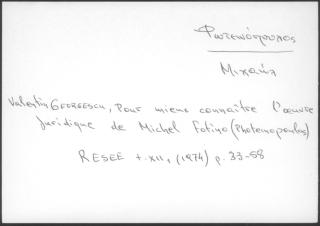 Φωτεινόπουλος
Μιχαήλ
Valentin GEORGESCU, Pour mieux connaître l'œuvre
juridique de Michel Fotino (Photeinopoulos)
RESEE t. XII, (1974) p. 33-58